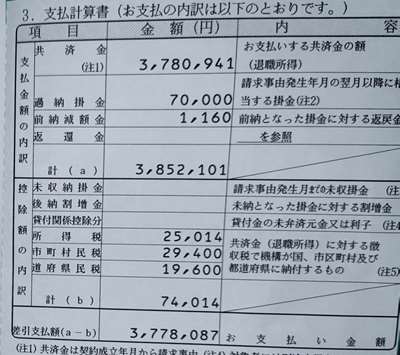 3. 支払計算書(お支払の内訳は以下のとおりです。)
項目 金額(円) 内容
支払金額の内訳
共済金(注1) 3,780,941 お支払いする共済金の額(退職所得)
過納掛金 70,000 請求事由発生年月の翌月以降に相
当する掛金(注2)
前納減額金 1,160 前納となった掛金に対する返戻金
返還金 を参照
計(a) 3,852,101
控除額の内訳
未収納掛金 請求事由発生月までの未収掛金 (注
後納割増金 未納となった掛金に対する割増金
貸付関係控除分 貸付金の未弁済元金又は利子 (注4
所得税 25,014 共済金(退職所得)に対する徴
市町村民税 29,400 収税で機構が国、市区町村及び
道府県民税 19,600 都道府県に納付するもの (注5)
計(b) 74,014
差引支払額(a-b) 3,778,087 お支払金額
(注1) 共済金は契約成立年月から請求事由